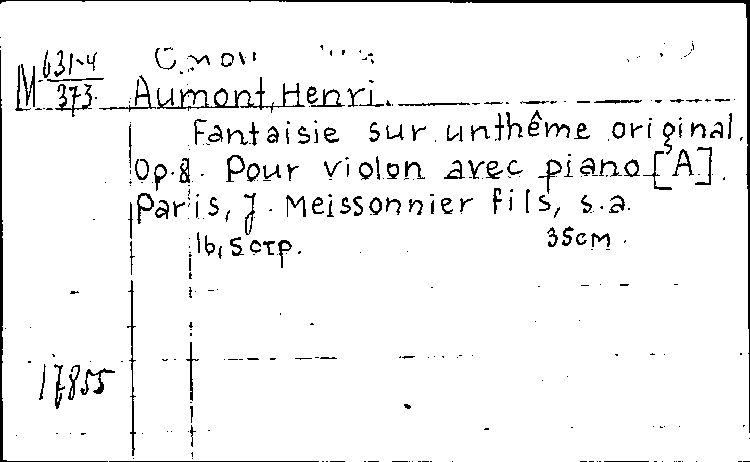 M 631-4
373.
Aumont, Henri.
Fantaisie sur un thême original.
Op. 8. Pour violon avec piano [A].
Paris, J. Meissonnier fils, s.a.
16, 5 стр. 35см.
17855